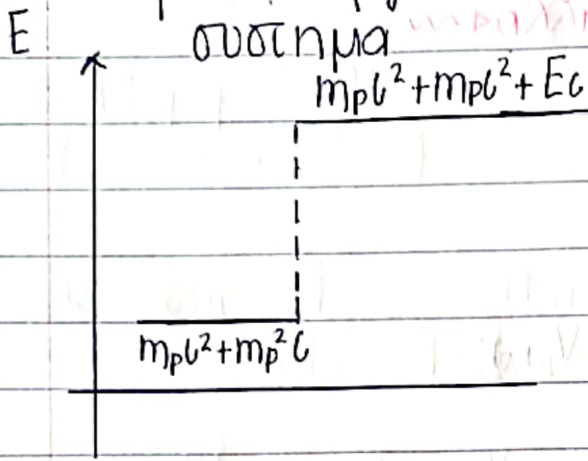 E
σύστημα
mₚc²+mₚc²+Ec
mₚc²+mₚ²c